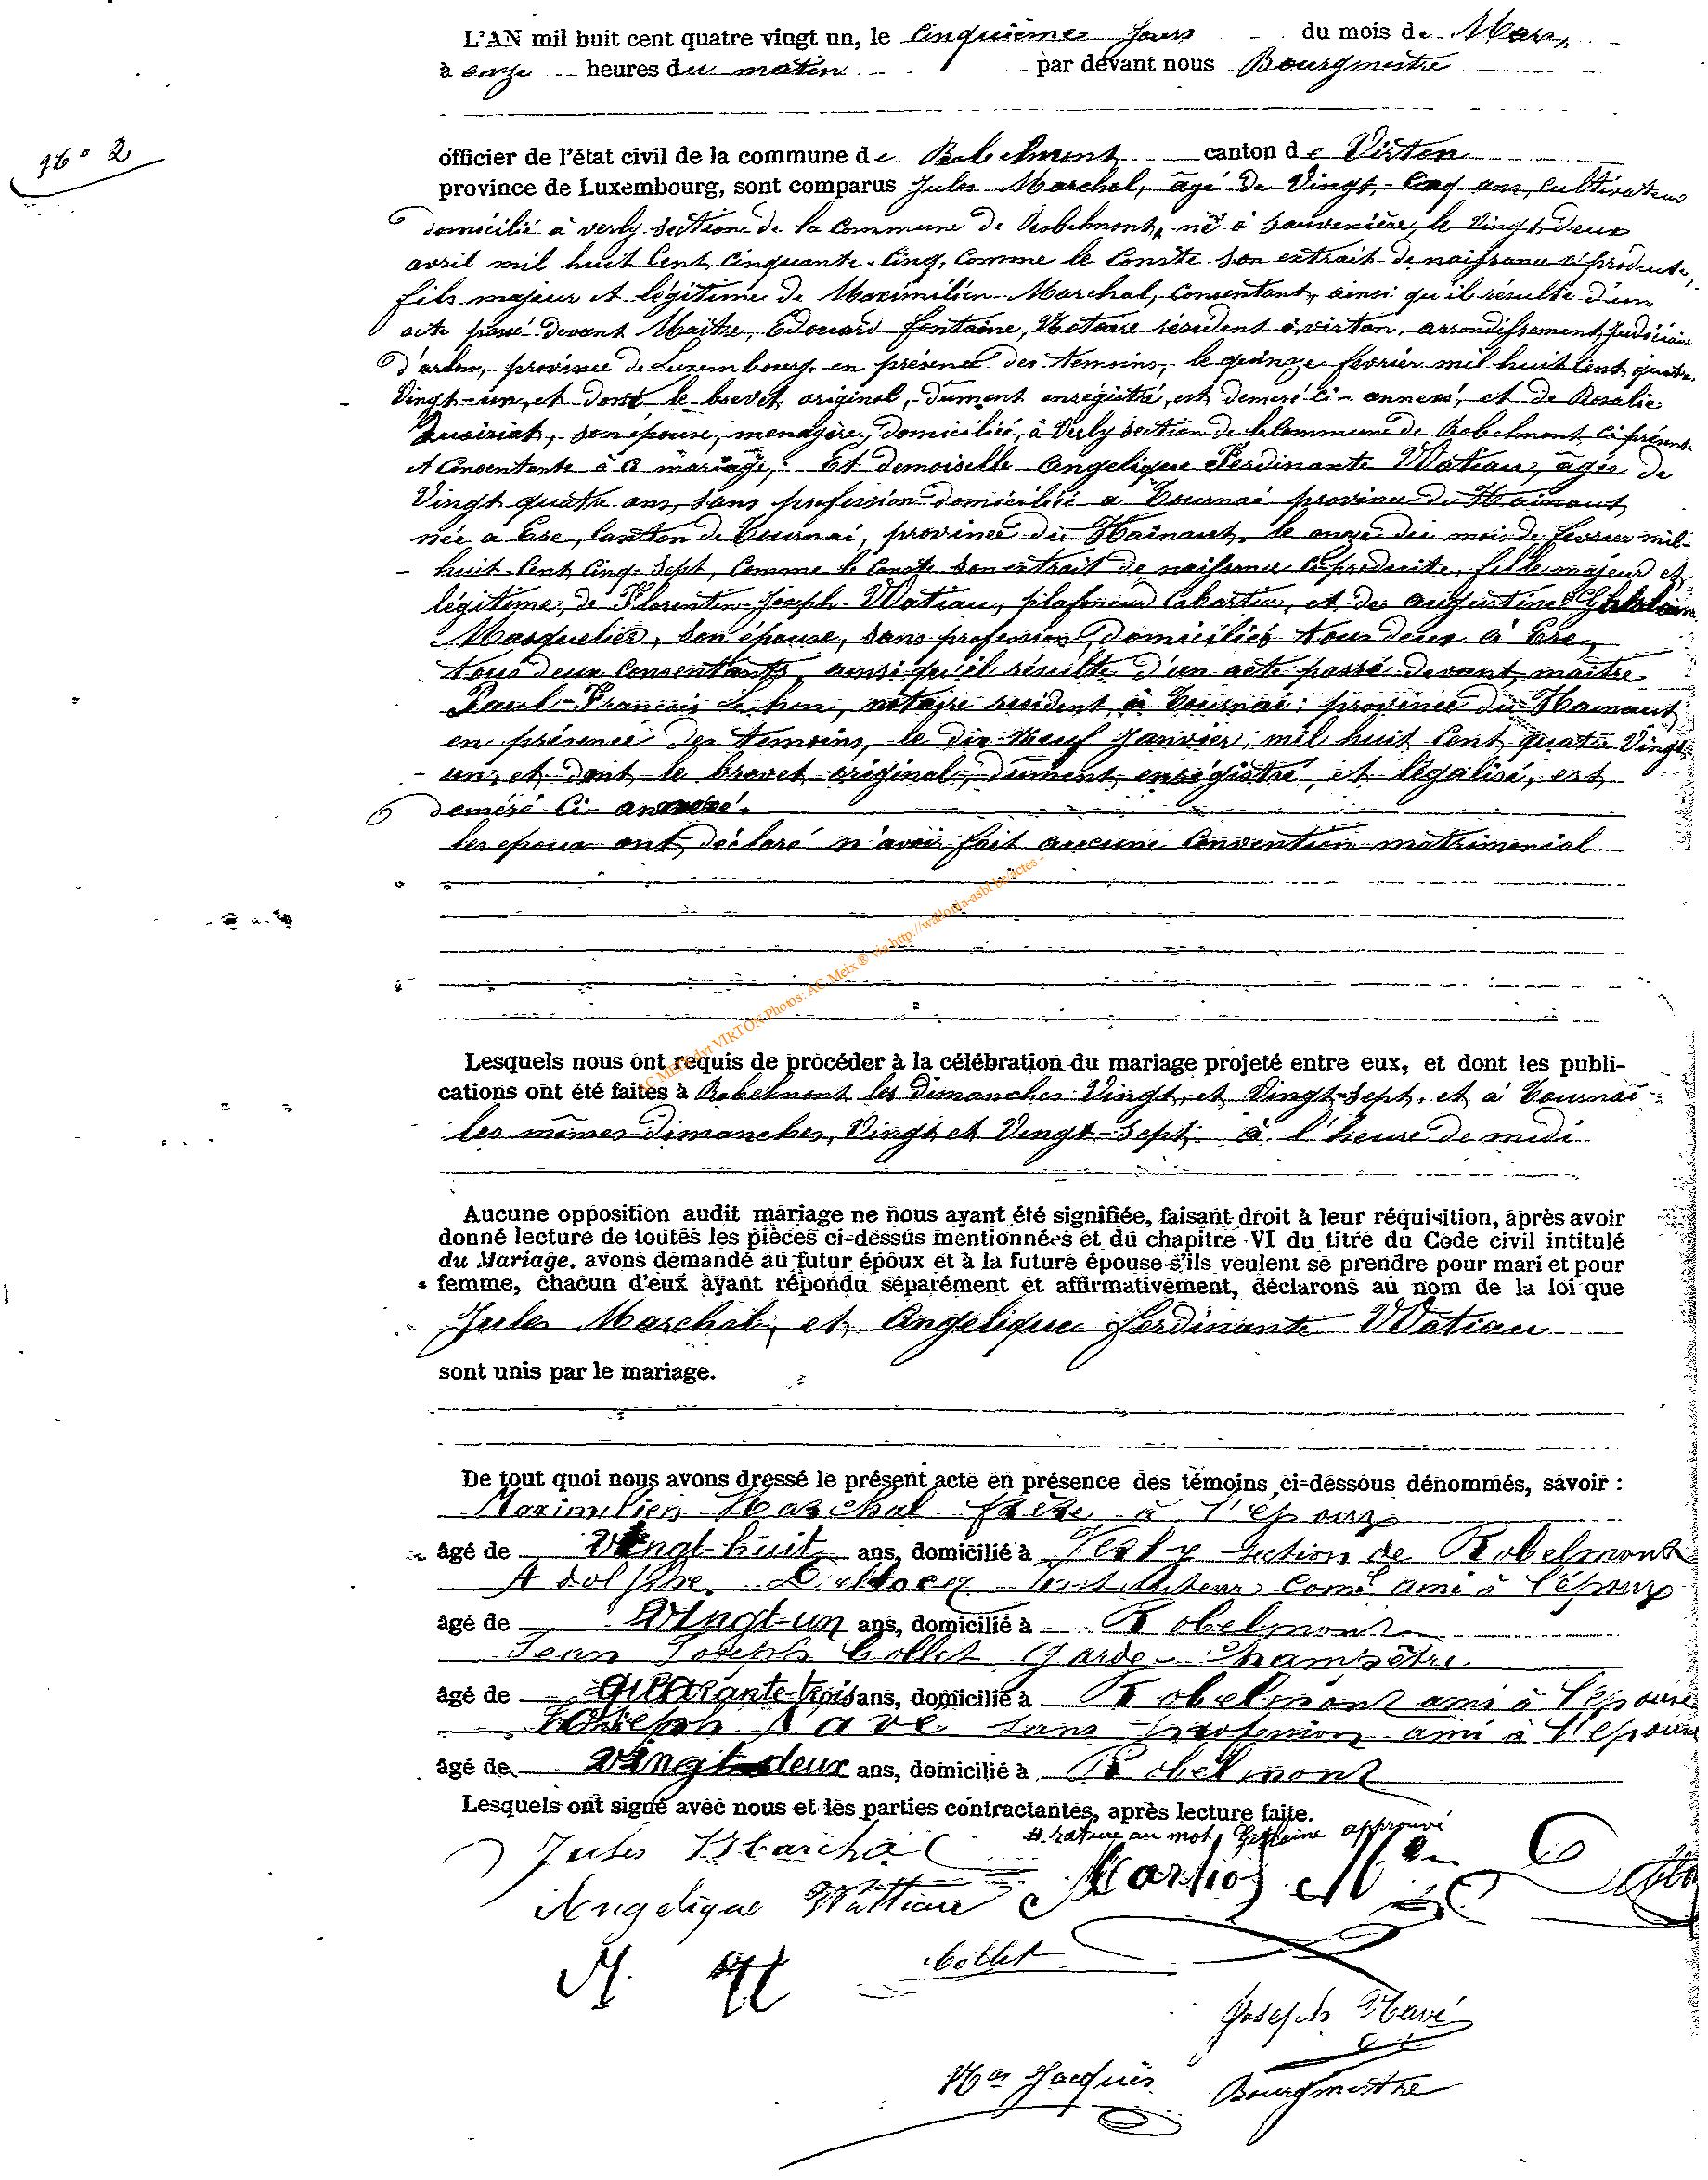 L'AN mil huit cent quatre vingt un, le cinquième Jours du mois de Mars,
à onze heures du matin par devant nous Bourgmestre
N° 2
officier de l'état civil de la commune de Robelmont canton de Virton
province de Luxembourg, sont comparus Jules Marchal, âgé de Vingt-Cinq ans, Cultivateur
domicilié à verly section de la Commune de Robelmont, né à Sauvenière, le Vingt deux
avril mil huit Cent Cinquante-Cinq, comme le Conste son extrait de naissance ci produite,
fils majeur et légitime de Maximilien Marchal, consentant, ainsi qu'il résulte d'un
acte passé devant Maître, Edouard Fontaine, Notaire résident à virton, arrondissement Judiciaire
d'arlon, province de Luxembourg, en présence des temoins, le quinze fevrier mil huit Cent quatre
Vingt-un, et dont le brevet original, dûment enregistré, est demeré ci-annexé, et de Rosalie
son épouse, menagère, domiciliée, à Verly section de la Commune de Robelmont, ci présente
et Consentante à ce mariage; Et demoiselle Angelique Ferdinante Watiau, âgée de
Vingt quatre ans, sans profession domiciliée a Tournai province du Hainaut
née a Ere, Canton de Tournai, province du Hainaut, le onze du mois de fevrier mil-
huit Cent Cinq-Sept, Comme le Conste son extrait de naissance ci produite, fille majeur et
légitime, de Florentin-Joseph Watiau, plafoneur Cabartier, et de augustine
Masquelier, son épouse, sans profession, domiciliés tous deux à Ere,
tous deux Consentants, ainsi qu'il résulte d'un acte passé devant maître
Paul-François Lehon, notaire resident à Tournai, province du Hainaut,
en présence des temoins, le dix Neuf Janvier, mil huit Cent quatre Vingt
un, et dont le brevet original, dûment enrégistré, et légalisé, est
demeré ci-annexé.
les epoux ont déclaré n'avoir fait aucune Convention matrimonial
AC Meix dvt VIRTON Photos: AC Meix ® via http://wallonia-asbl.be/actes -
Lesquels nous ont requis de procéder à la célébration du mariage projeté entre eux, et dont les publi-
cations ont été faites à Robelmont les Dimanches Vingt, et Vingt-Sept, et à Tournai
les mêmes Dimanches, Vingt et Vingt-Sept à l'heure de midi
Aucune opposition audit mariage ne nous ayant été signifiée, faisant droit à leur réquisition, après avoir
donné lecture de toutes les pièces ci-dessus mentionnées et du chapitre VI du titre du Code civil intitulé
du Mariage, avons demandé au futur époux et à la future épouse s'ils veulent se prendre pour mari et pour
femme, chacun d'eux ayant répondu séparément et affirmativement, déclarons au nom de la loi que
Jules Marchal, et Angelique Ferdinante Watiau
sont unis par le mariage.
De tout quoi nous avons dressé le présent acte en présence des témoins ci-dessous dénommés, savoir :
Maximilien Marchal frère à l'époux
âgé de Vingt-huit ans, domicilié à Verly section de Robelmont
Adolphe Instituteur Coml ami à l'époux
âgé de Vingt-un ans, domicilié à Robelmont
Jean Joseph Collet Garde-Champêtre
âgé de quarante-trois ans, domicilié à Robelmont ami à l'épouse
Joseph Havé sans profession ami à l'épouse
âgé de vingt deux ans, domicilié à Robelmont
Lesquels ont signé avec nous et les parties contractantes, après lecture faite.
rature au mot Gislaine approuvé
Jules Marchal
Angelique Wattiau
Collet
Joseph Havé
Jacques Bourgmestre